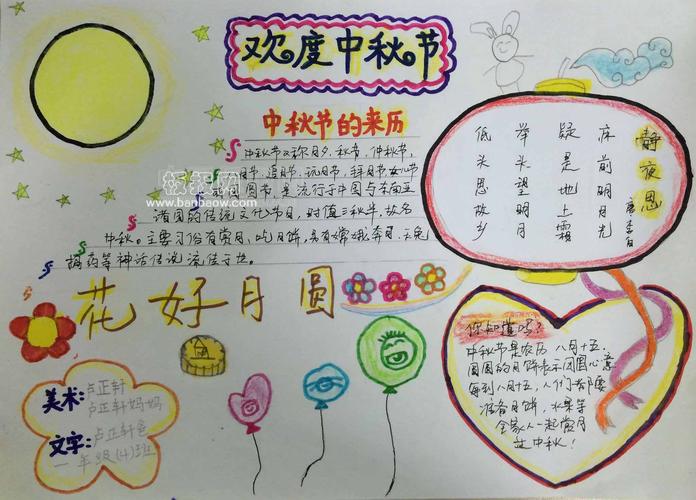 欢度中秋节
中秋节的来历
中秋节又称月夕、秋节、仲秋节、
月节、追月节、玩月节、拜月节、女儿节
团圆节,是流行于中国与东南亚
诸国的传统文化节日,时值三秋半,故名
中秋。主要习俗有赏月、吃月饼,另有嫦娥奔月、玉兔
捣药等神话传说流传于世。
板报网
www.banbaow.com
静夜思
唐 李白
床前明月光
疑是地上霜
举头望明月
低头思故乡
花好月圆
你知道吗?
中秋节是农历八月十五,
圆圆的月饼表示团圆心意
每到八月十五,人们都要
准备月饼,水果等
全家人一起赏月
过中秋!
美术:卢正轩
卢正轩妈妈
文字:卢正轩爸
一年级(4)班